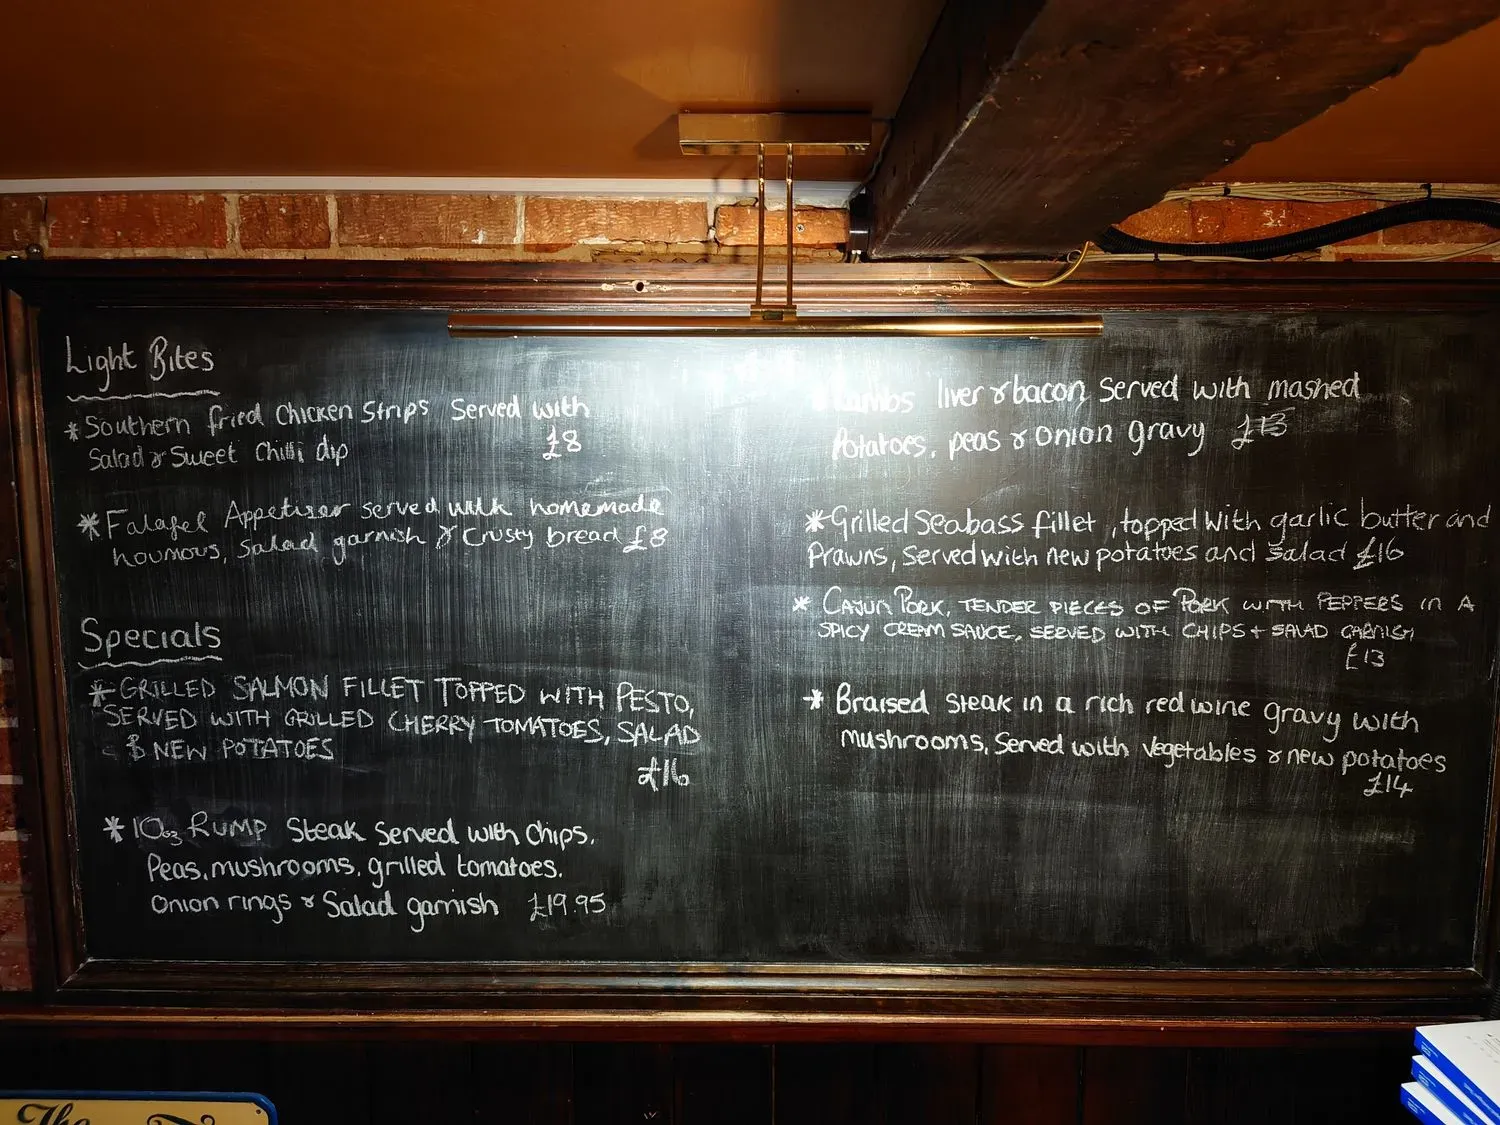 Light Bites
* Southern fried Chicken Strips Served with
Salad & Sweet Chilli dip £8
* Falafel Appetiser served with homemade
houmous, salad garnish & Crusty bread £8
Specials
* GRILLED SALMON FILLET TOPPED WITH PESTO,
SERVED WITH GRILLED CHERRY TOMATOES, SALAD
& NEW POTATOES
£16
* 10oz RUMP Steak Served with Chips,
Peas, mushrooms, grilled tomatoes,
Onion rings & Salad garnish £19.95
* Lambs liver & bacon Served with mashed
Potatoes, peas & onion gravy £13
* Grilled Seabass fillet, topped with garlic butter and
Prawns, served with new potatoes and salad £16
* CAJUN PORK, TENDER PIECES OF PORK WITH PEPPERS IN A
SPICY CREAM SAUCE, SERVED WITH CHIPS + SALAD GARNISH
£13
* Braised Steak in a rich red wine gravy with
mushrooms, Served with Vegetables & new potatoes
£14
The